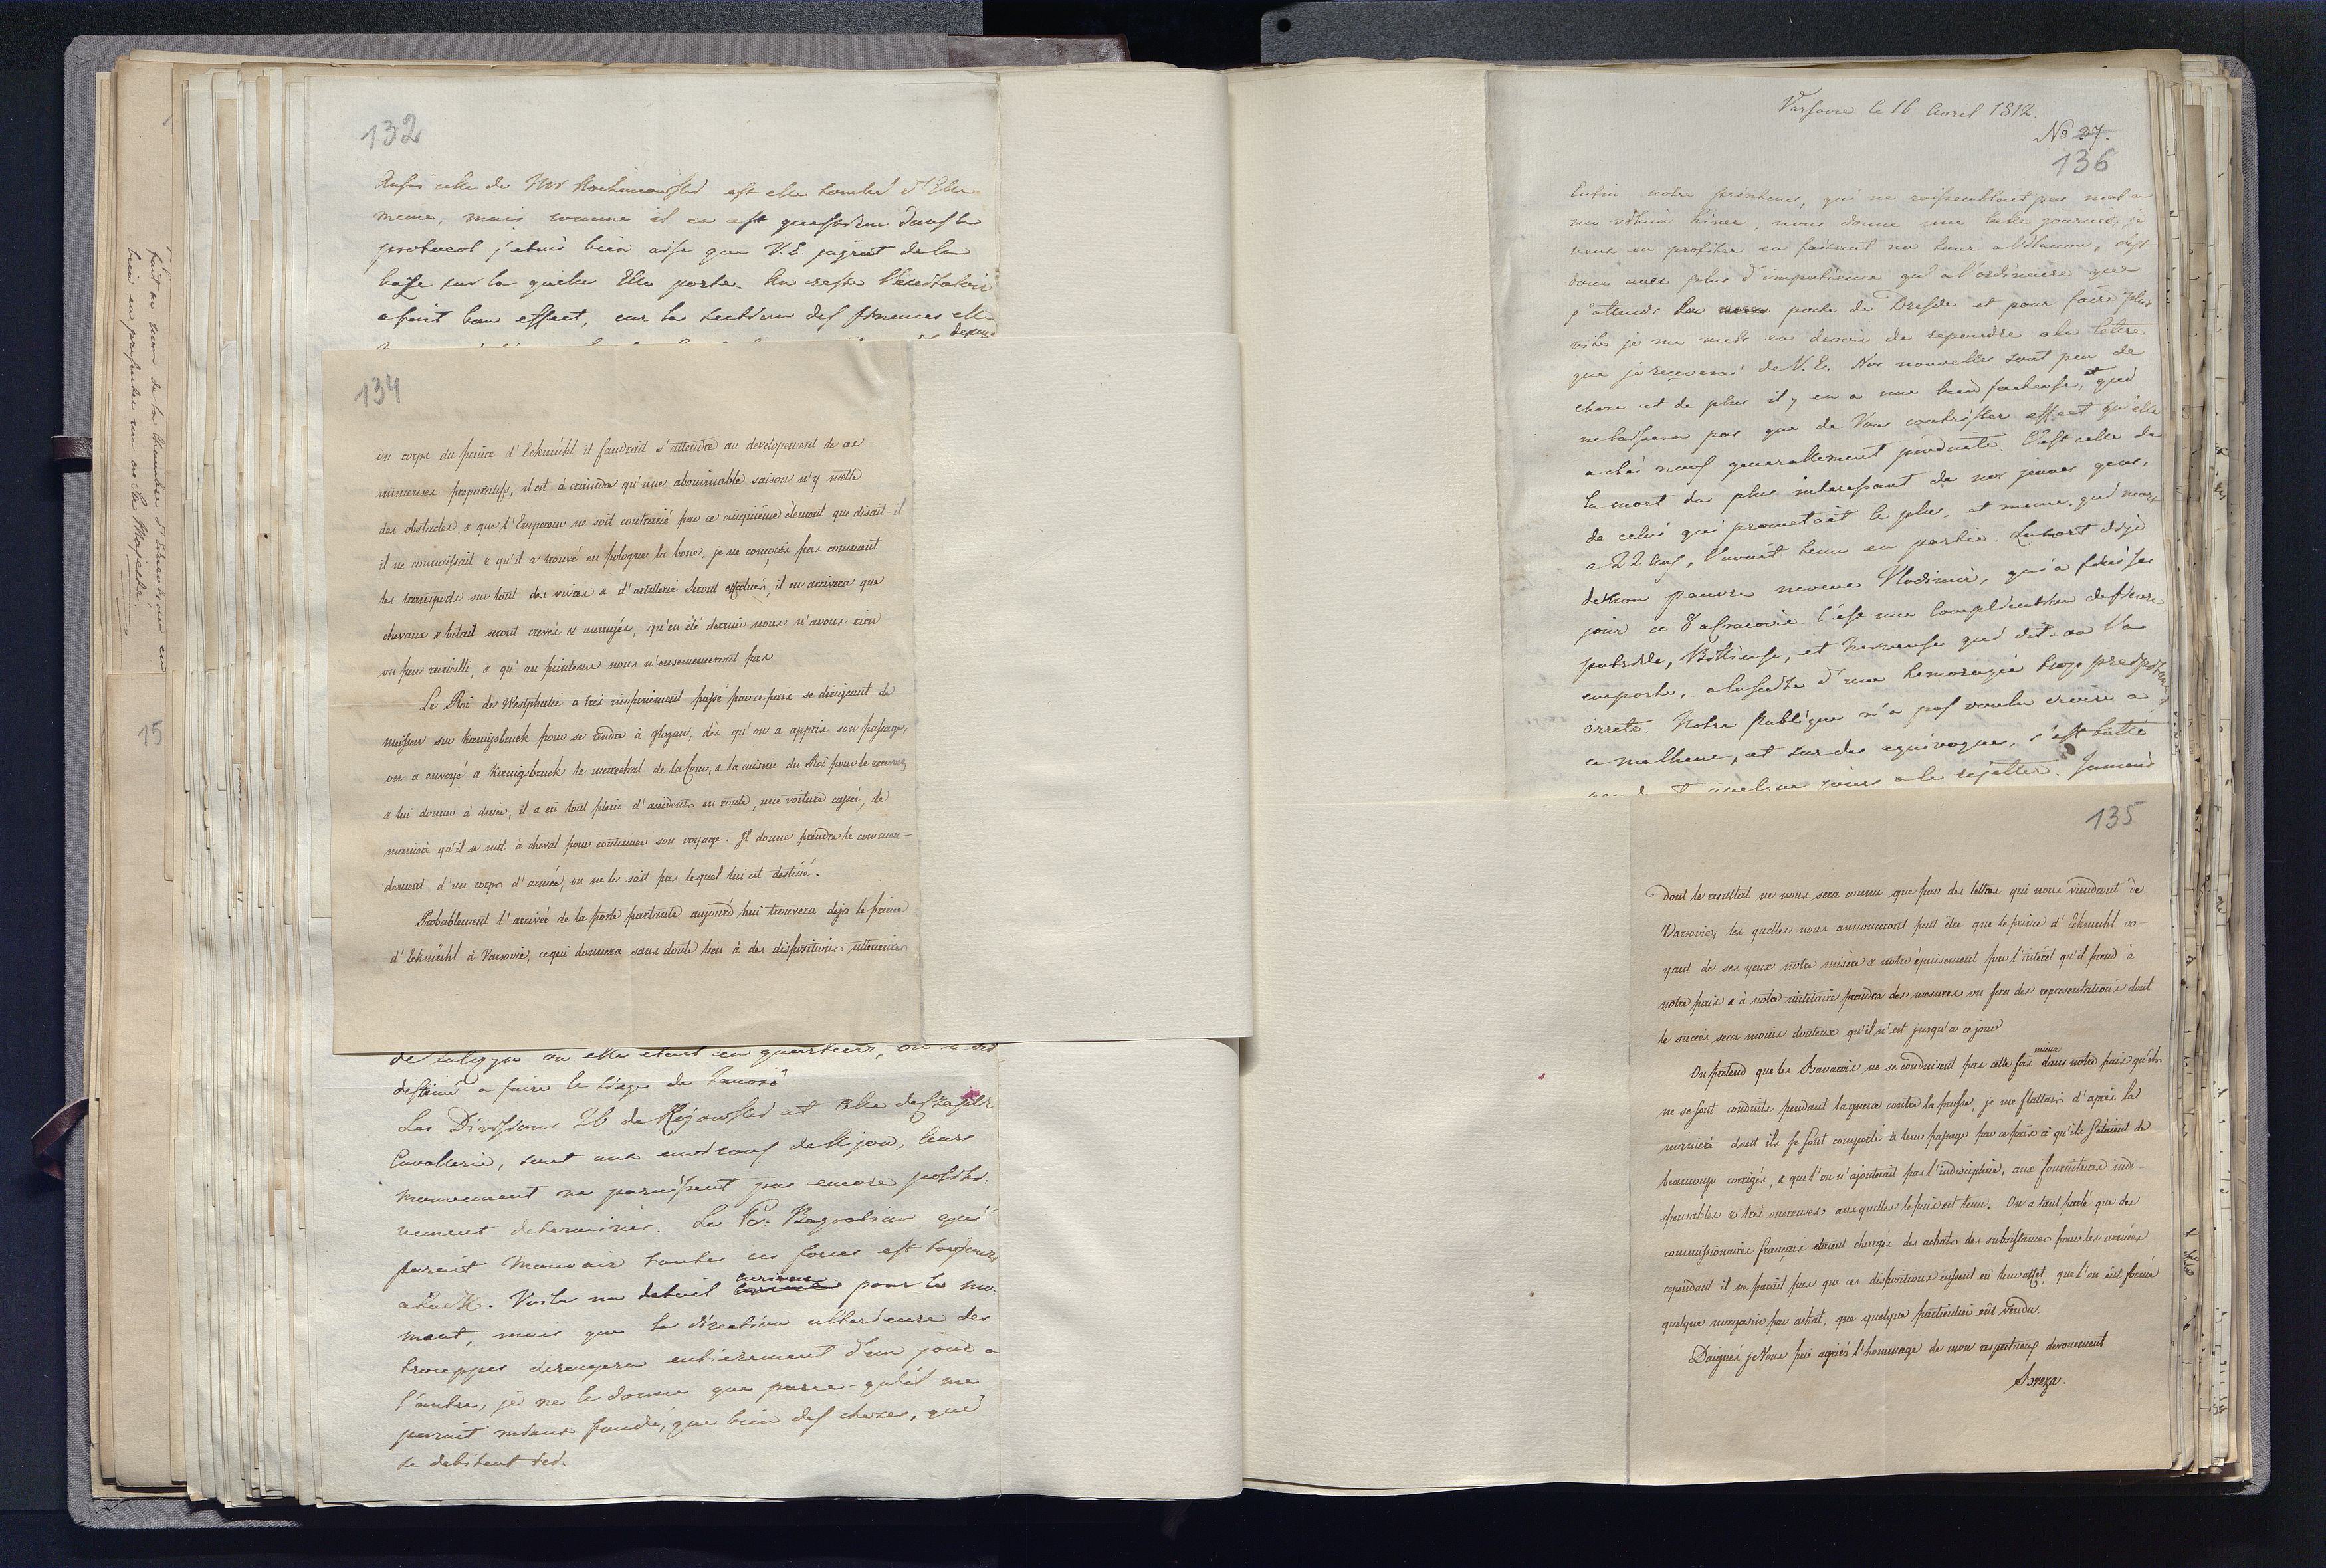 132
meme, mais comme il en est question dans le
protocol j'etais bien aise que V.E. jugeat de la
base sur la quelle Elle porte. Au reste
a fait bon effect, car la section des finances elle
134
du corps du prince d'Eckmühl il faudrait s'attendre au developement de ces
immenses preparatifs, il est à craindre qu'une abominable saison n'y mette
des obstacles, & que l'Empereur ne soit contrarié par ce cinquième élément que disait-il
il ne connaissait & qu'il a trouvé en pologne la boue, je ne conçois pas comment
les transports sur tout des vivres & d'artillerie seront effectués, il en arrivera que
chevaux & betail seront crevés & mangés, qu'en été dernier nous n'avons rien
ou peu recueilli, & qu'au printems nous n'ensemencerons pas
Le Roi de Westphalie a très inopinément passé par ce pais se dirigeant de
Meissen sur Kœnigsbruck pour se rendre à glogau, dès qu'on a appris son passage,
on a envoyé a Kœnigsbruck le marechal de la Cour, & la cuisine du Roi pour le recevoir
& lui donner à diner, il a eu tout plein d'accidents en route, une voiture cassée, de
maniere qu'il se mit à cheval pour continuer son voyage. Il donne prendre le commen-
dement d'un corps d'armée, on ne le sait pas lequel lui est destiné.
Probablement l'arrivée de la poste partante aujourd'hui trouvera deja le prince
d'Eckmühl à Varsovie, ce qui donnera sans doute lieu à des dispositions ulterieures
de ou elle etait en quartiers, on a dit
destiné a faire le siege de
Les Divisions 26 de et Celle des
Cavallerie, sont aux environs de leurs
mouvement ne paroissent pas encore positi-
vement determinés. Le Pr: Bagration qui
parait mouvoir toutes ces forces est toujours
a Luck. Voila un detail curieux pour le mo-
ment, mais que la direction ulterieure des
trouppes derangera entierement d'un jour a
l'autre, je ne le donne que parce-qu'il me
parait mieux fondé, que bien des choses, qui
se debitent ici.
fait au nom de la Chambre d'Education, en
bien en presenter un a Sa Majesté.
15
Varsovie le 16 Avril 1812.
No 37.
136
Enfin notre printems, qui ne ressemblait pas mal a
un vilain hiver, nous donne une belle journée, je
veux en profiter en faisant un tour a Vilanow, c'est
donc avec plus d'impatience qu'a l'ordinaire que
j'attends la poste de Dresde et pour faire plus
vite je me mets en devoir de repondre a la lettre
que je reçeverai de V.E. Nos nouvelles sont peu de
chose et de plus il y en a une bien facheuse, et qui
ne laissera pas que de Vous contrister effect qu'elle
a chés nous generallement produite. C'est celle de
la mort du plus interessant de nos jeunes gens,
de celui qui prometait le plus, et meme, qui mort
a 22 ans, l'avait tenu en partie. La mort dis je
de mon pauvre neveu Vlodimir, qui a fini ses
jours ce 8 a Cracovie. C'est une Complication de fievre
putride, Billieuse, et Nerveuse qui dit-on l'a
emporté, a la suite d'une hemoragie trop
arreté. Notre Publique n'a pas voulu croire a
ce malheur, et sur des equivoques, s'est
quelque jours a le rejetter. Jamais
135
dont le resultat ne nous sera connu que par des lettres qui nous viendront de
Varsovie, les quelles nous annonceront peut être que le prince d'Eckmuhl vo-
yant de ses yeux notre misere & notre épuisement, par l'intéret qu'il prend à
notre pais & à notre militaire prendra des mesures ou fera des representations dont
le succès sera moins douteux qu'il n'est jusqu'a ce jour
On pretend que les Bavarois ne se conduisent pas cette fois mieux dans notre pais qu'ils
ne se sont conduits pendant la guerre contre la prusse, je me flattais d'après la
maniere dont ils se sont comporté à leur passage par ce pais ci qu'ils s'étaient de
beaucoup corrigés, & que l'on n'ajouterait pas l'indiscipline, aux fournitures indi-
spensables & très onereuses aux quelles le pais est tenu. On a tant parlé que des
commissionaires français etaient chargés des achats des subsistances pour les armées
cependant il ne parait pas que ces dispositions eussent eu leur effet, que l'on eut formé
quelque magasin par achat, que quelque particulier eût vendu.
Daignés je Vous prie agréer l'homage de mon respectueux devouement
Breza.